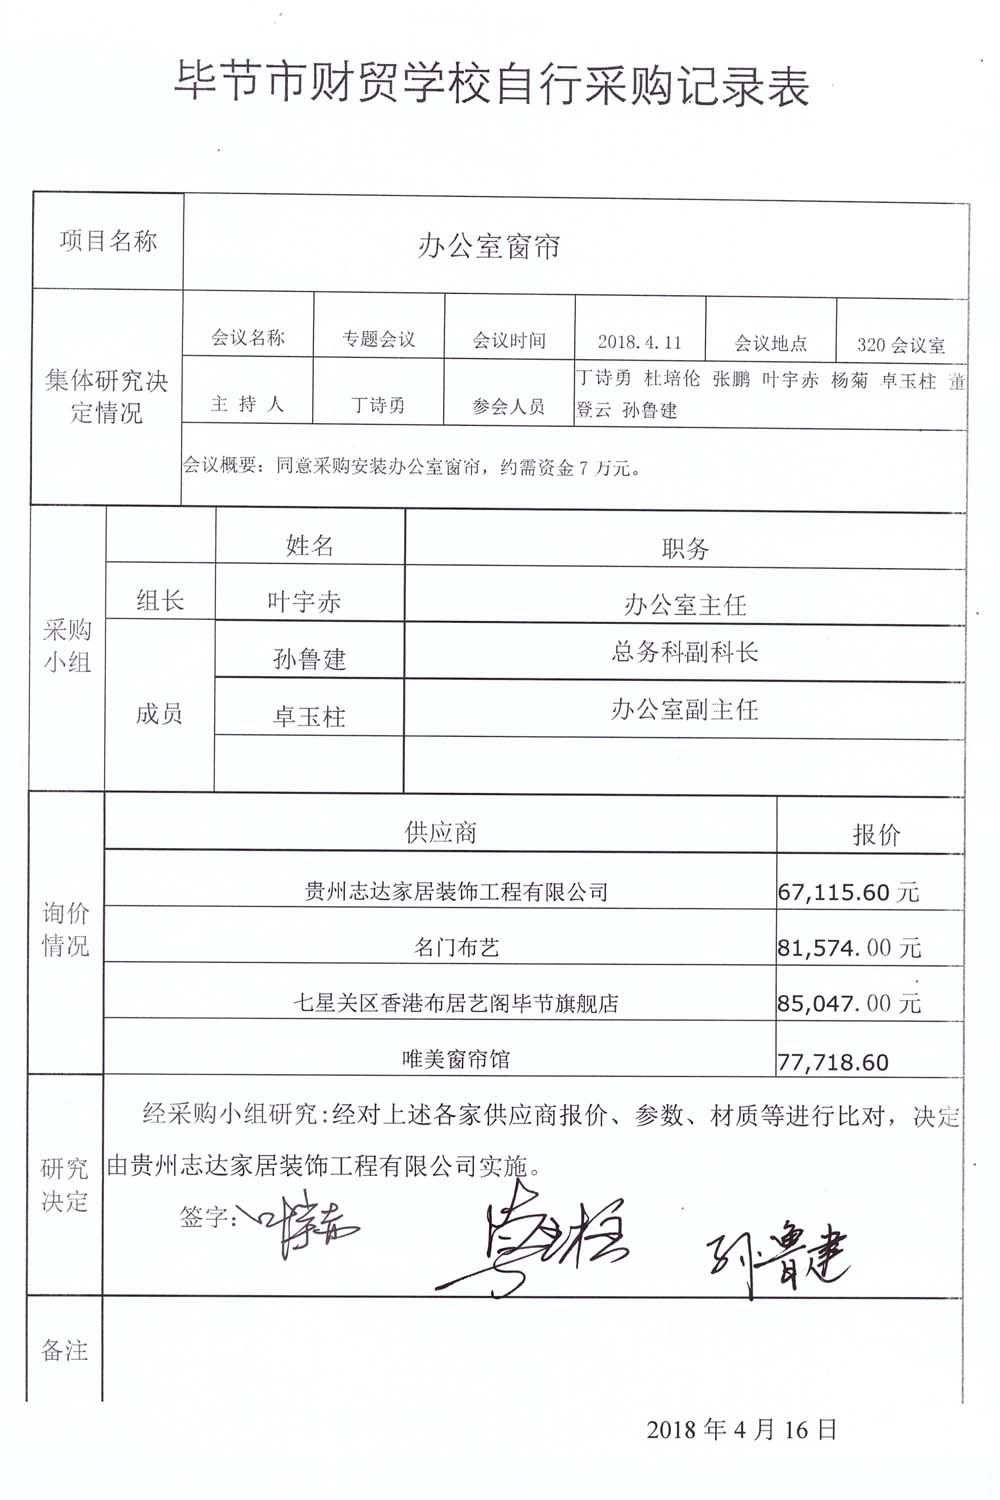 毕节市财贸学校自行采购记录表
项目名称 办公室窗帘
集体研究决定情况
会议名称 专题会议 会议时间 2018.4.11 会议地点 320 会议室
主 持 人 丁诗勇 参会人员 丁诗勇 杜培伦 张鹏 叶宇赤 杨菊 卓玉柱 董
登云 孙鲁建
会议概要：同意采购安装办公室窗帘，约需资金 7 万元。
采购
小组
姓名 职务
组长 叶宇赤 办公室主任
成员
孙鲁建 总务科副科长
卓玉柱 办公室副主任
询价
情况
供应商 报价
贵州志达家居装饰工程有限公司 67,115.60 元
名门布艺 81,574.00 元
七星关区香港布居艺阁毕节旗舰店 85,047.00 元
唯美窗帘馆 77,718.60
研究
决定
经采购小组研究:经对上述各家供应商报价、参数、材质等进行比对，决定
由贵州志达家居装饰工程有限公司实施。
签字: 叶宇赤 卓玉柱 孙鲁建
备注
2018 年 4 月 16 日